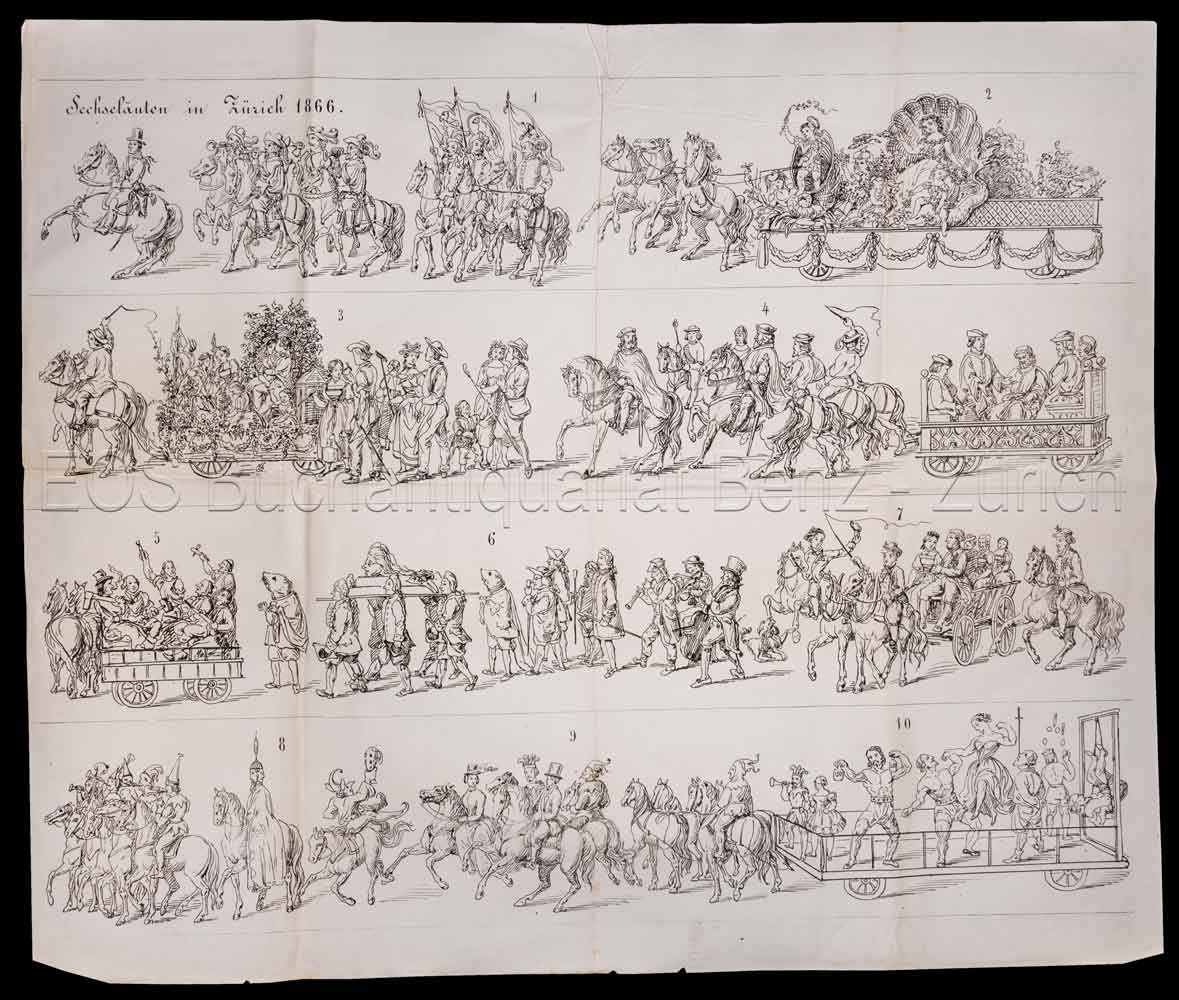 Sechseläuten in Zürich 1866.
1
2
3
4
EOS Buchantiquariat Benz - Zürich
5
6
7
8
9
10